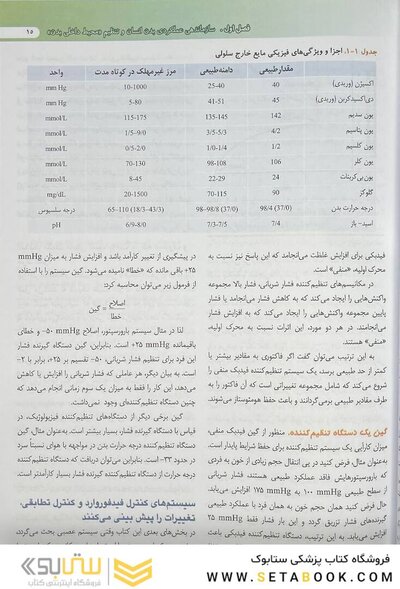 فصل اول . سازماندهی عملکردی بدن انسان و تنظیم «محیط داخلی بدن» ۱۵
جدول ۱-۱. اجزا و ویژگی‌های فیزیکی مایع خارج سلولی
مقدار طبیعی دامنه طبیعی مرز غیرمهلک در کوتاه مدت واحد
اکسیژن (وریدی) 40 25-40 10-1000 mm Hg
دی‌اکسیدکربن (وریدی) 45 41-51 5-80 mm Hg
یون سدیم 142 135-145 115-175 mmol/L
یون پتاسیم 4/2 3/5-5/3 1/5-9/0 mmol/L
یون کلسیم 1/2 1/0-1/4 0/5-2/0 mmol/L
یون کلر 106 98-108 70-130 mmol/L
یون بی‌کربنات 24 22-29 8-45 mmol/L
گلوکز 90 70-115 20-1500 mg/dL
درجه حرارت بدن 98/4 (37/0) 98-98/8 (37/0) 65-110 (18/3-43/3) درجه سلسیوس
اسید- باز 7/4 7/3-7/5 6/9-8/0 pH
فیدبکی برای افزایش غلظت می‌انجامد که این پاسخ نیز نسبت به
محرک اولیه، «منفی» است.
در مکانیسم‌های تنظیم‌کننده فشار شریانی، فشار بالا مجموعه
واکنش‌هایی را ایجاد می‌کند که به کاهش فشار می‌انجامد یا فشار
پایین مجموعه واکنش‌هایی را ایجاد می‌کند که به افزایش فشار
می‌انجامند. در هر دو مورد، این اثرات نسبت به محرک اولیه،
«منفی» هستند.
به این ترتیب می‌توان گفت اگر فاکتوری به مقادیر بیشتر یا
کمتر از حد طبیعی برسد، یک سیستم تنظیم‌کننده فیدبک منفی را
شروع می‌کند که شامل مجموعه تغییراتی است که آن فاکتور را به
طرف مقادیر طبیعی برمی‌گردانند و باعث حفظ هومئوستاز می‌شوند.
گین یک دستگاه تنظیم‌کننده. منظور از گین فیدبک منفی،
میزان کارآیی یک سیستم تنظیم‌کننده برای حفظ شرایط پایدار است.
به‌عنوان مثال، فرض کنید در پی انتقال حجم زیادی از خون به فردی
که بارورسپتورهایش فاقد عملکرد طبیعی هستند، فشار شریانی
از سطح طبیعی ۱۰۰ mmHg به ۱۷۵ mmHg افزایش می‌یابد.
حال فرض کنید همان حجم خون به همان فرد با عملکرد طبیعی
گیرنده‌های فشار تزریق گردد و این بار فشار فقط ۲۵ mmHg
افزایش می‌یابد. به این ترتیب، دستگاه فیدبک باعث
در پیشگیری از تغییر کارآمد باشد و افزایش فشار به میزان mmHg
۲۵+ باقی مانده که «خطا» نامیده می‌شود. گین سیستم را با استفاده
از فرمول زیر می‌توان محاسبه کرد:
گین = اصلاح / خطا
لذا در مثال سیستم بارورسپتور، اصلاح ۵۰ mmHg- و خطای
باقیمانده ۲۵ mmHg+ است. بنابراین، گین دستگاه گیرنده فشار
این فرد برای تنظیم فشار شریانی، ۵۰- تقسیم بر ۲۵+، برابر با ۲-
است. به بیان دیگر، هر عاملی که فشار شریانی را افزایش یا کاهش
می‌دهد، این کار را فقط به میزان یک سوم زمانی انجام می‌دهد که
چنین دستگاه تنظیم‌کننده‌ای وجود نمی‌داشت.
گین برخی دیگر از دستگاه‌های تنظیم‌کننده فیزیولوژیک، در
قیاس با گیرنده فشار، بسیار بیشتر است. به‌عنوان مثال، گین
دستگاه تنظیم‌کننده درجه حرارت بدن در مواجهه با هوای نسبتاً سرد
در حدود ۳۳- است. بنابراین می‌توان دریافت که دستگاه تنظیم‌کننده
درجه حرارت از دستگاه تنظیم‌کننده فشار بسیار کارآمدتر است.
سیستم‌های کنترل فیدفوروارد و کنترل تطابقی،
تغییرات را پیش بینی می‌کنند
در بخش‌های بعدی این کتاب وقتی سیستم عصبی بحث می‌گردد،
ستابوک
فروشگاه اینترنتی کتاب
فروشگاه کتاب پزشکی ستابوک
WWW.SETABOOK.COM